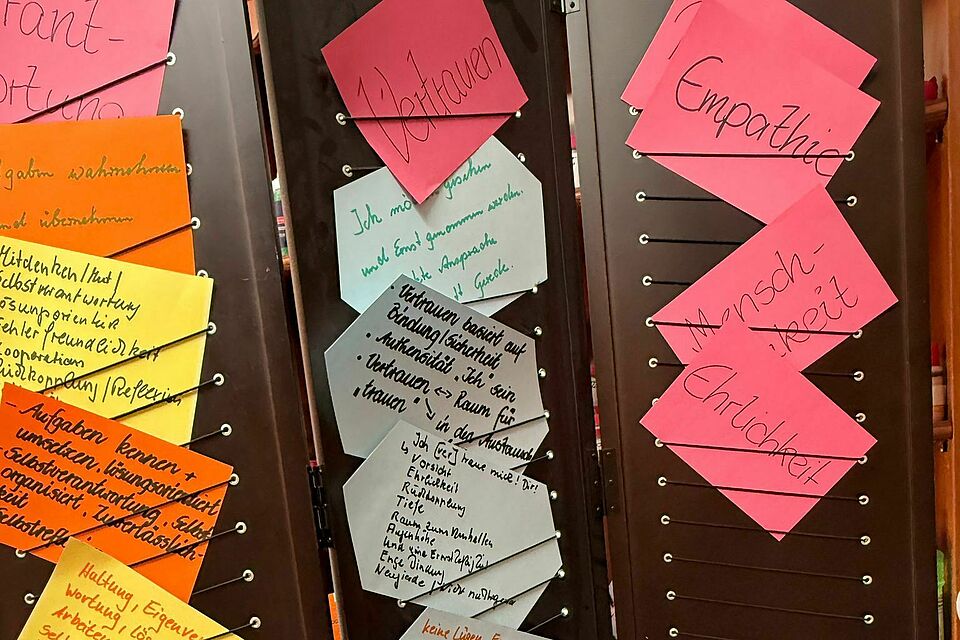 ant-
ortung
gaben wahrnehmen
und übernehmen
Mitdenken / Mut /
Selbstverantwortung
lösungsorientier
ehler freundlichkeit
Kooperation
Rückkopplung / Reflexion
- Aufgaben kennen +
umsetzen, lösungsorientiert
- Selbstverantwortung, Selbst
organisiert, Zuverlässlich-
keit
Selbstrefl
Haltung, Eigenver
wortung, lös
Arbeiten
Sel
Vertrauen
Ich mö gesehen
und Ernst genommen werden.
Ansprache
• Vertrauen basiert auf
Bindung/Sicherheit
• Authensität „Ich" sein
• Vertrauen ↔ Raum für
„trauen" ↘ in den Austausch
Ich traue mich! Dir!
↳ Vorsicht
Ehrlichkeit
Rückkopplung
Tiefe
Raum zum
Augenhöhe
und eine
Enge Bindung
Neugierde /
keine Lügen, E
Empathie
Mensch-
keit
Ehrlichkeit